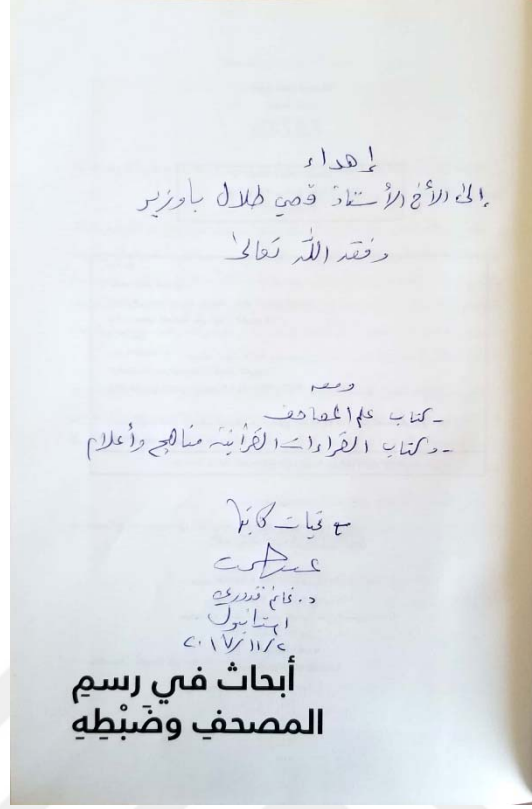 إهداء
إلى الأخ الأستاذ قصي طلال باوزير
وفقه الله تعالى
ومعه
- كتاب علم المصاحف
- وكتاب القراءات القرآنية مناهج وأعلام
مع تحيات كاتبها
د. غانم قدوري
استانبول
٢٠١٧/١١/٢
أبحاث في رسمِ
المصحفِ وضَبْطِهِ